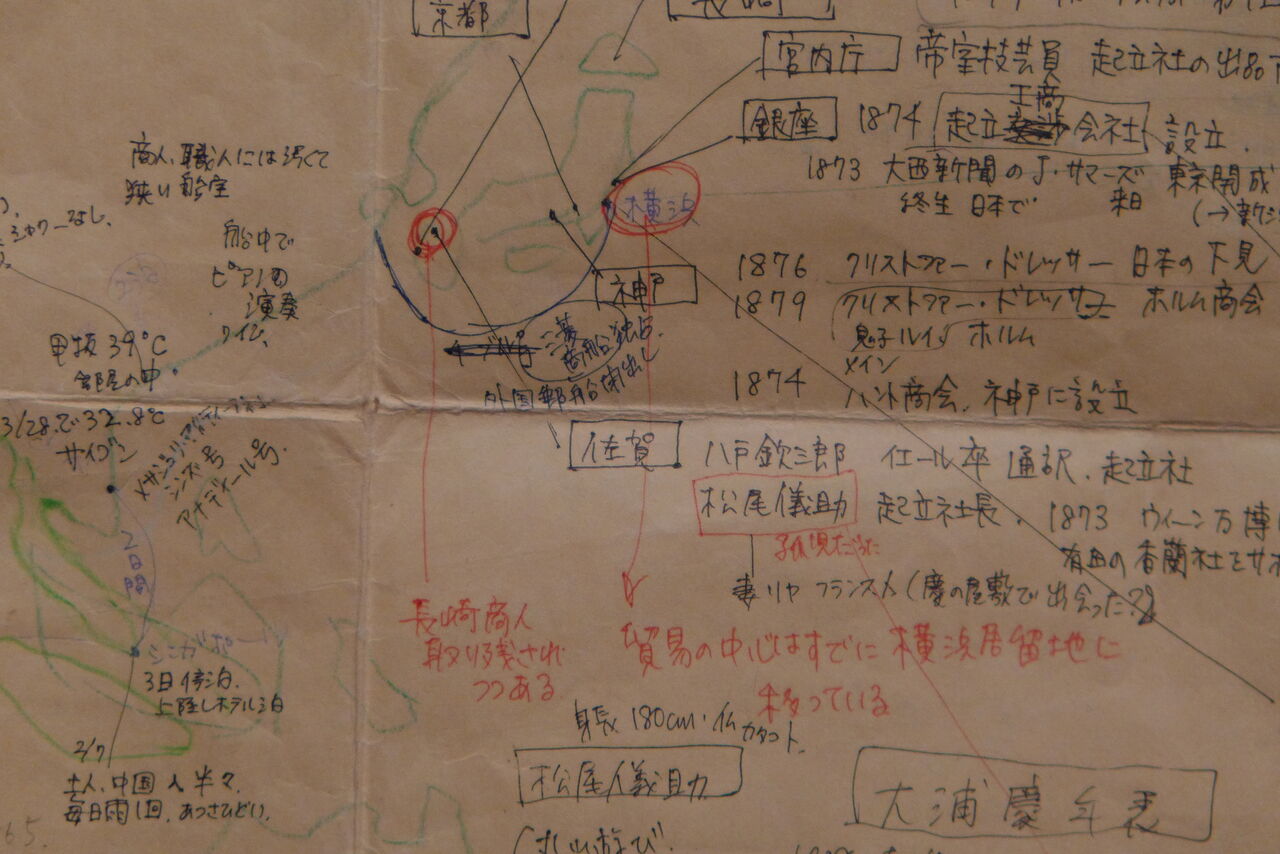 京都
宮内庁 帝室技芸員 起立社の出品
工商
銀座 1874 起立会社 設立.
1873 大西新聞のJ・サマーズ 東京開成
終生 日本で 来日
横浜
商人、職人には
狭い船室
船中で
ピアノの
演奏
ワイン、
神戸
1876 クリストファー・ドレッサー 日本の下見
1879 クリストファー・ドレッサー ホルム商会
息子ルイス ホルム
メイン
1874 ハント商会、神戸に設立
三菱
商船独占.
外国郵船閉出し
甲板39℃
部屋の中
3/28で32.8℃
サイゴン
シンズ号
アナディール号
2日間
佐賀 八戸欽三郎 イェール卒 通訳、起立社
松尾儀助 起立社長、1873 ウィーン万博
有田の香蘭社をサポ
妻リヤ フランス人(慶の屋敷で出会った?)
長崎商人
取り残され
つつある
貿易の中心はすでに横浜居留地に
移っている
シンガポール
3日停泊.
上陸しホテル泊
2/7
土人、中国人半々、
毎日雨1回、あつさひどい.
身長180cm・仏
松尾儀助
大浦慶年表
丸山遊び